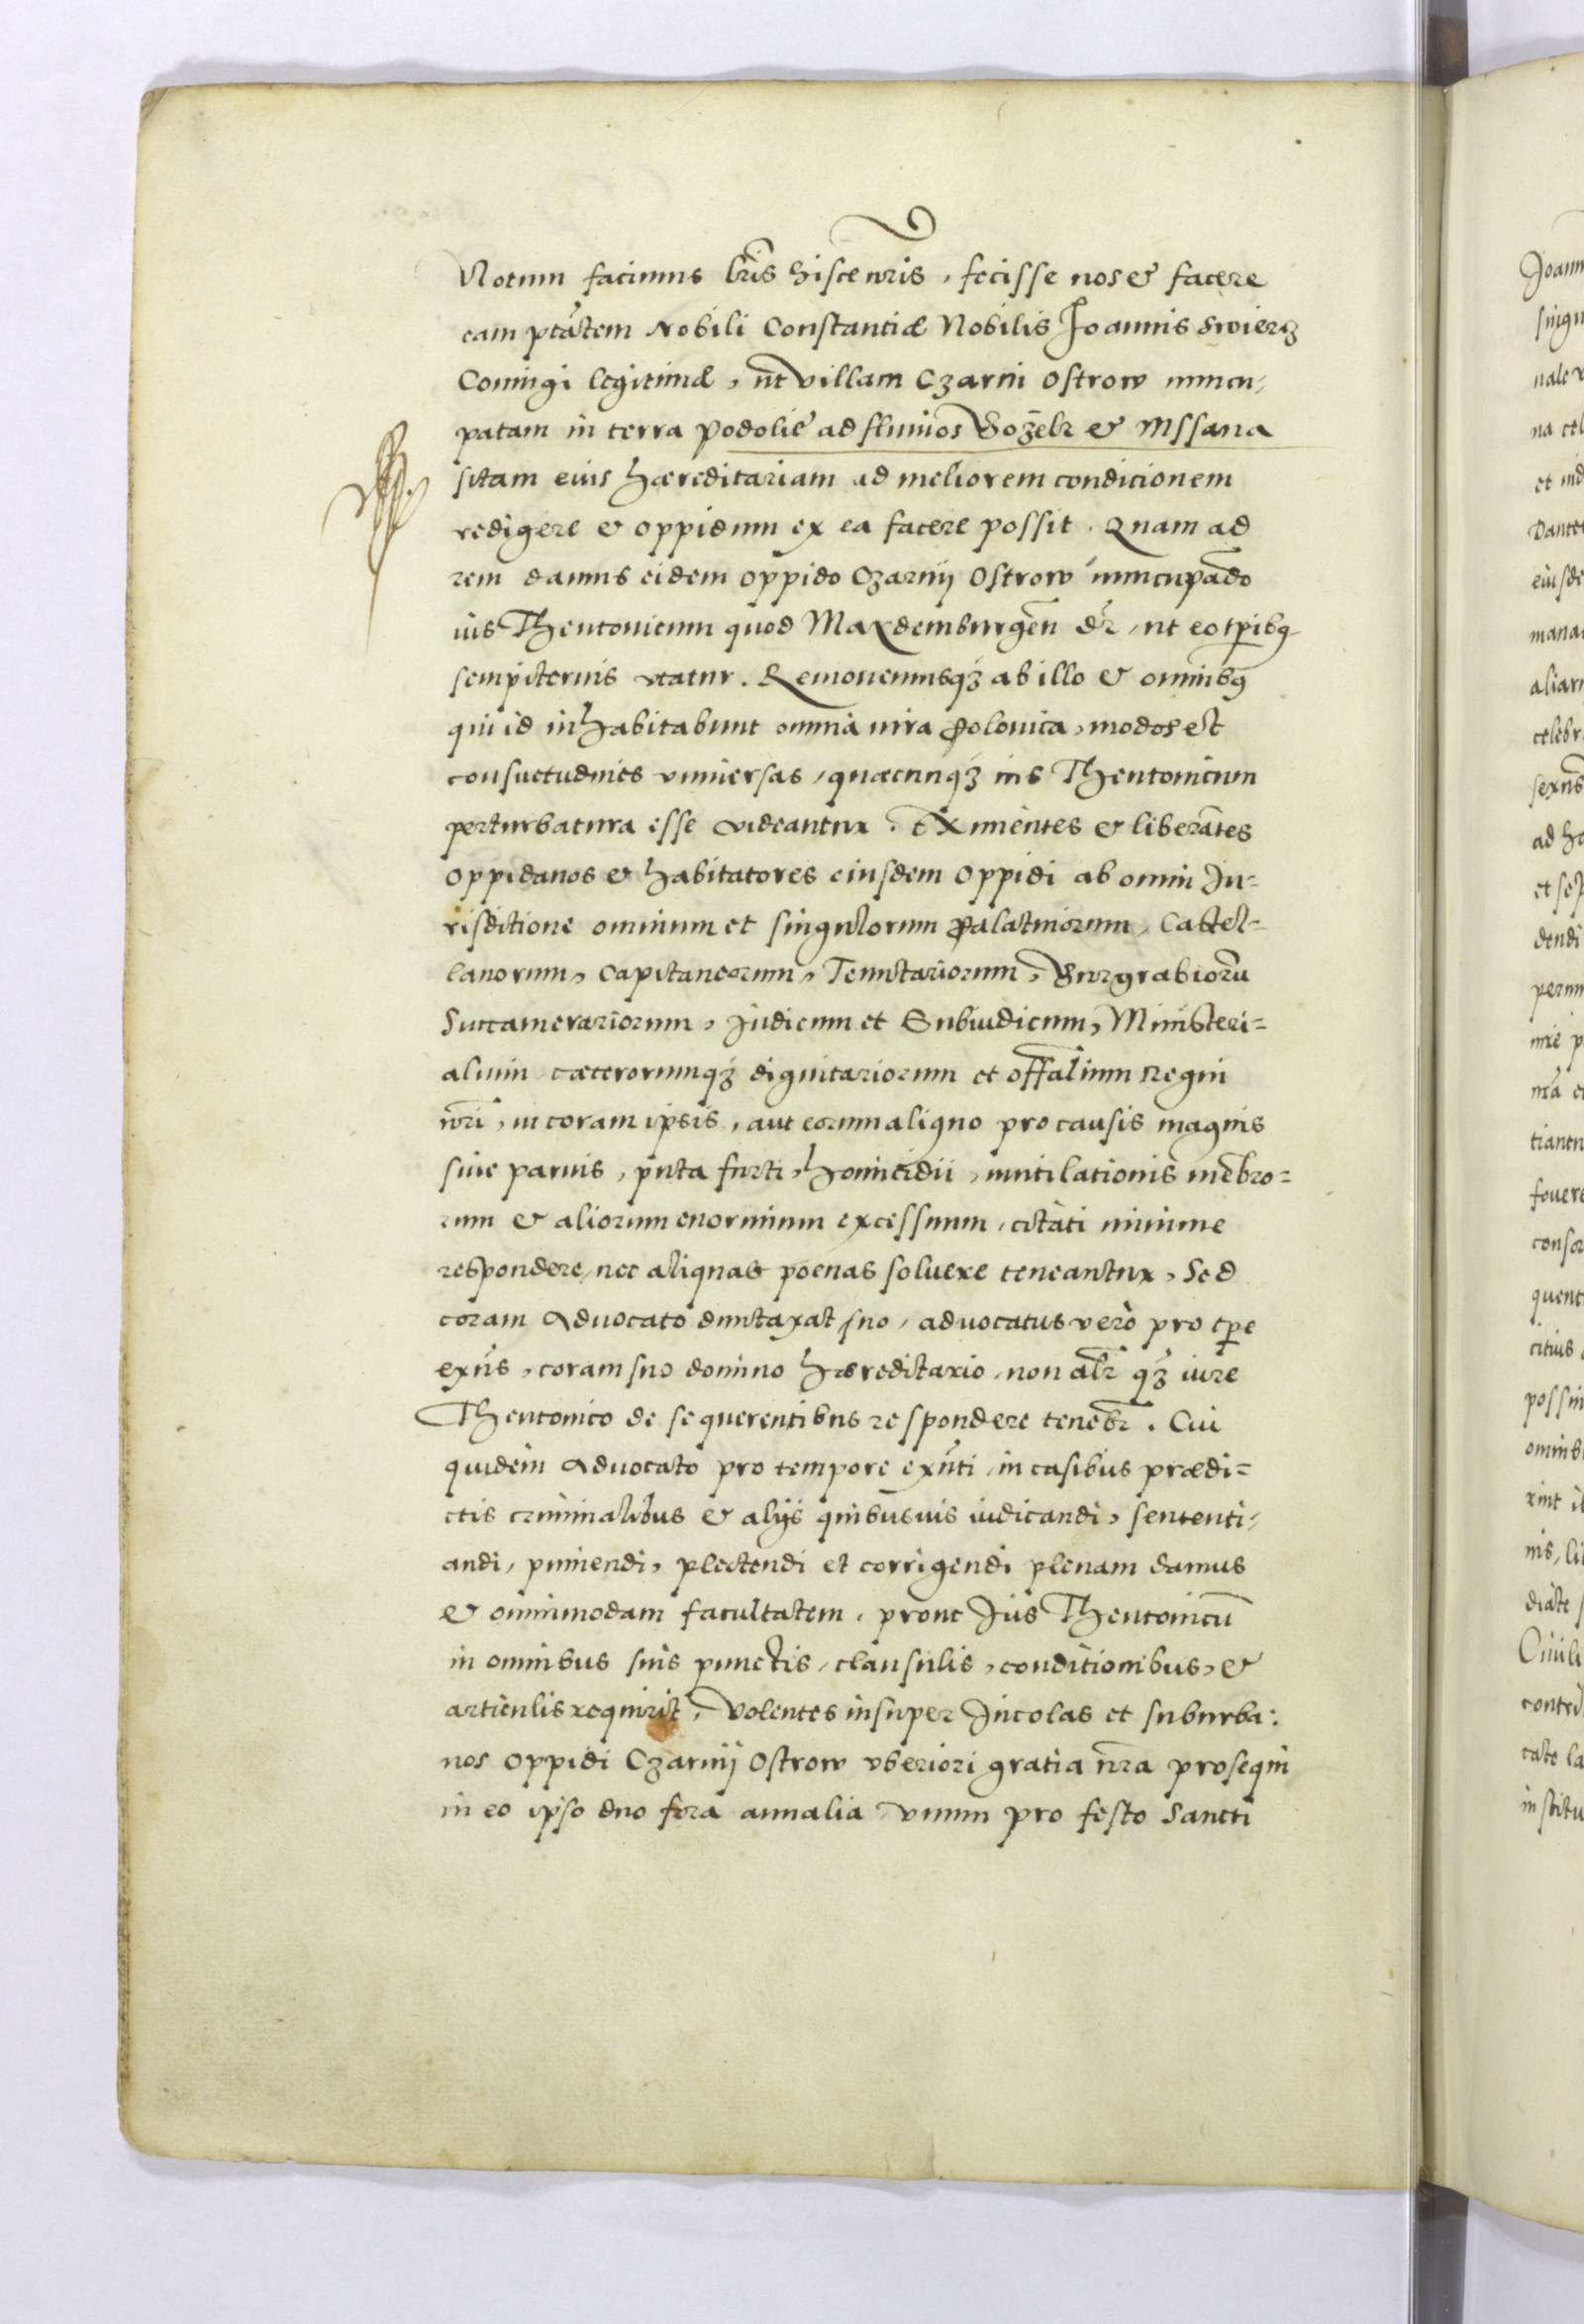 Notum facimus lr̃is hisce nr̃is, fecisse nos & facere
eam ptãtem Nobili Constantiæ Nobilis Joannis Swiercz
Coniugi legitimæ, ut villam Czarni Ostrow nuncu-
patam in terra Podolie ad fluuios Bozek & Mssana
sitam eius hæreditariam ad meliorem condicionem
redigere & oppidum ex ea facere possit. Quam ad
rem damus eidem oppido Czarnij Ostrow nuncupãdo
ius Theutonicum quod Maydemburgeñ dr̃, ut eo tp̃ibq
sempiternis vtatur. Remouemusqꝫ ab illo & omnibq
qui id inhabitabunt omnia iura Polonica, modos et
consuetudines vniuersas, quæcunqꝫ ius Theutonicum
perturbatura esse videantur. Eximentes & liberãtes
oppidanos & habitatores eiusdem oppidi ab omni Ju-
risditione omnium et singulorum Palatinorum, Castel-
lanorum, Capitaneorum, Tenutariorum, Burgrabiorũ
Succamerariorum, Judicum et Subiudicum, Ministeri-
alium cæterorumqꝫ dignitariorum et offalium Regni
nr̃i, ut coram ipsis, aut eorum aliquo pro causis magnis
siue paruis, puta furti, homicidii, mutilationis mẽbro-
rum & aliorum enormium excessuum, citati minime
respondere, nec aliquas poenas soluere teneantur, Sed
coram Aduocato duntaxat suo, aduocatus verò pro tp̃e
exñs, coram suo domino hæreditario, non alr̃ qꝫ iure
Theutonico de se querentibus respondere tenebr̃. Cui
quidem Aduocato pro tempore exñti, in casibus prædi-
ctis criminalibus & alijs quibusuis iudicandi, sententi-
andi, puniendi, plectendi et corrigendi plenam damus
& omnimodam facultatem, prout Jus Theutonicũ
in omnibus suis punctis, clausulis, conditionibus, &
articulis requirit, Volentes insuper Jncolas et suburba:
nos oppidi Czarnij Ostrow vberiori gratia nr̃a prosequi
in eo ipso duo fora annalia vnum pro festo Sancti